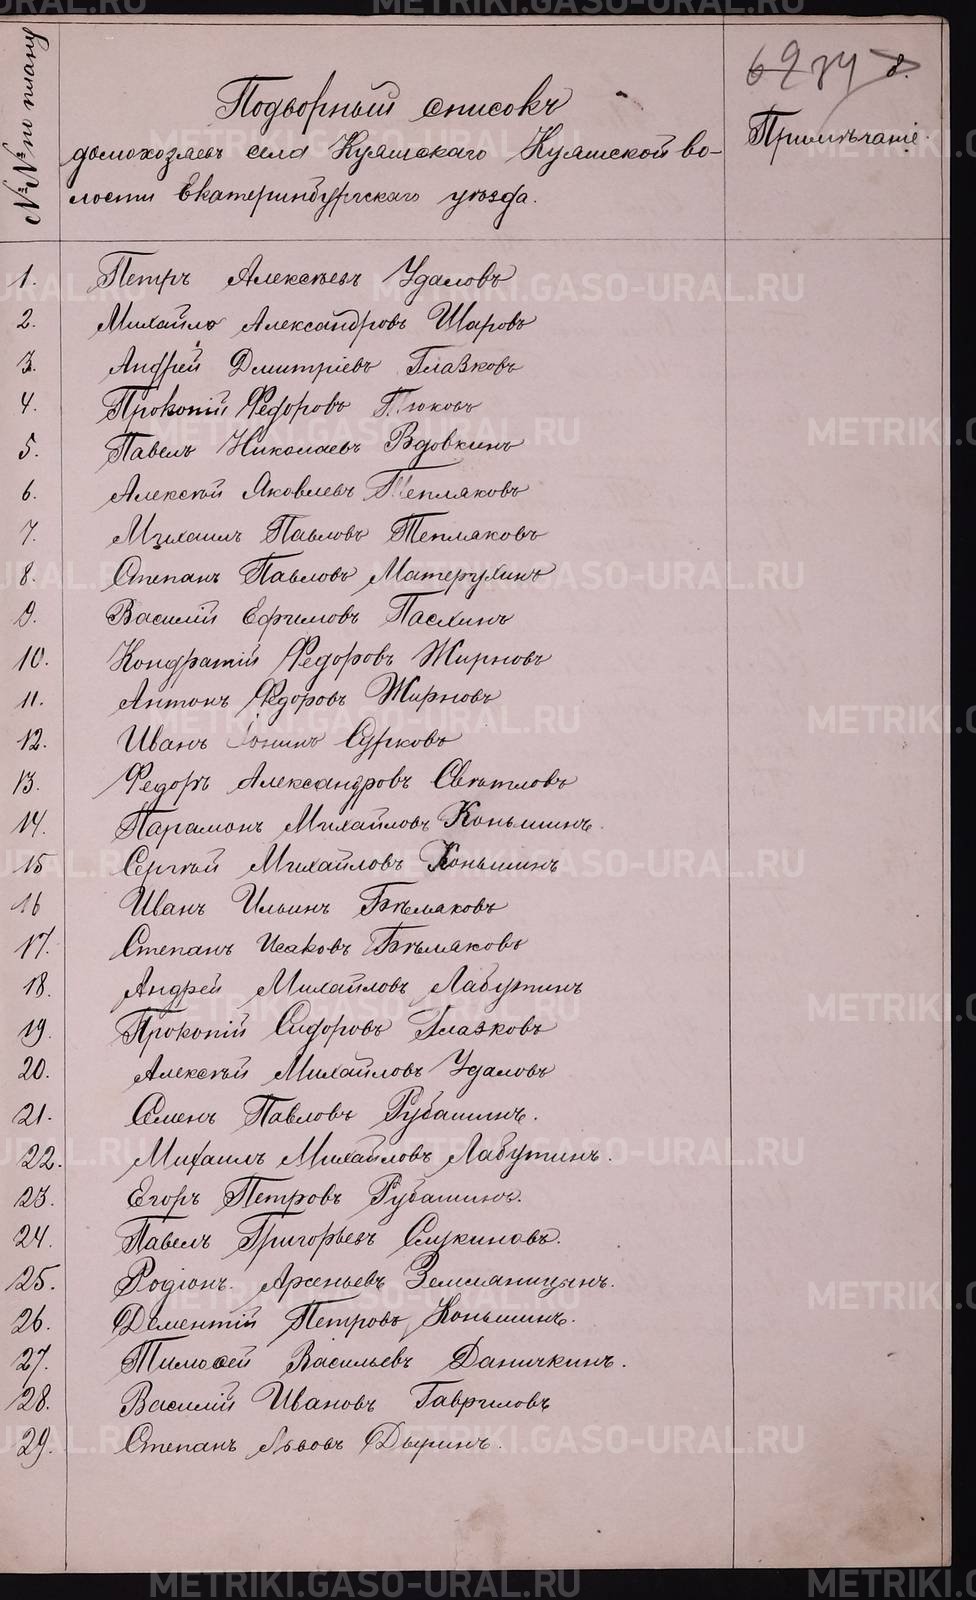 №№ по плану
Подворный списокъ
домохозяевъ села Куяшскаго Куяшской во-
лости Екатеринбургскаго уѣзда.
Примѣчаніе
1. Петръ Алексѣевъ Удаловъ
2. Михайло Александровъ Шаровъ
3. Андрей Дмитріевъ Глазковъ
4. Прокопій Федоровъ
5. Павелъ Николаевъ Вдовкинъ
6. Алексѣй Яковлевъ Тепляковъ
7. Михаилъ Павловъ Тепляковъ
8. Степанъ Павловъ Матерухинъ
9. Василій Ефимовъ Пасхинъ
10. Кондратій Федоровъ Жирновъ
11. Антонъ Федоровъ Жирновъ
12. Иванъ Іонинъ Сурковъ
13. Федоръ Александровъ Свѣтловъ
14. Парамонъ Михайловъ Коньшинъ.
15 Сергѣй Михайловъ Коньшинъ
16 Иванъ Ильинъ Бѣляковъ
17. Степанъ Исаковъ Бѣляковъ
18. Андрей Михайловъ Лабутинъ
19. Прокопій Сидоровъ Глазковъ
20. Алексѣй Михайловъ Удаловъ
21. Семенъ Павловъ Рубашинъ.
22. Михаилъ Михайловъ Лабутинъ.
23. Егоръ Петровъ Рубашинъ.
24. Павелъ Григорьевъ Слукиновъ.
25. Родіонъ. Арсеньевъ Земляницынъ.
26. Дементій Петровъ Коньшинъ.
27. Тимоѳей Васильевъ Даничкинъ.
28. Василій Ивановъ Гавриловъ
29. Степанъ Львовъ Дыринъ.
METRIKI.GASO-URAL.RU